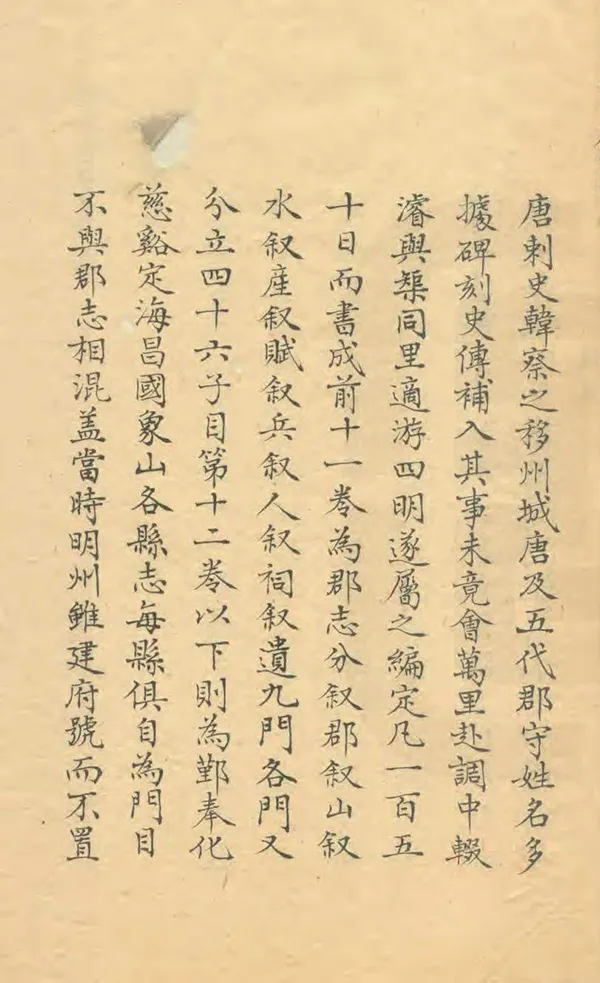 唐刺史韓察之移州城唐及五代郡守姓名多
據碑刻史傳補入其事未竟會萬里赴調中輟
濬與榘同里適游四明遂屬之編定凡一百五
十日而書成前十一卷為郡志分叙郡叙山叙
水叙産叙賦叙兵叙人叙祠叙遺九門各門又
分立四十六子目第十二卷以下則為鄞奉化
慈谿定海昌國象山各縣志每縣俱自為門目
不與郡志相混蓋當時明州雖建府號而不置